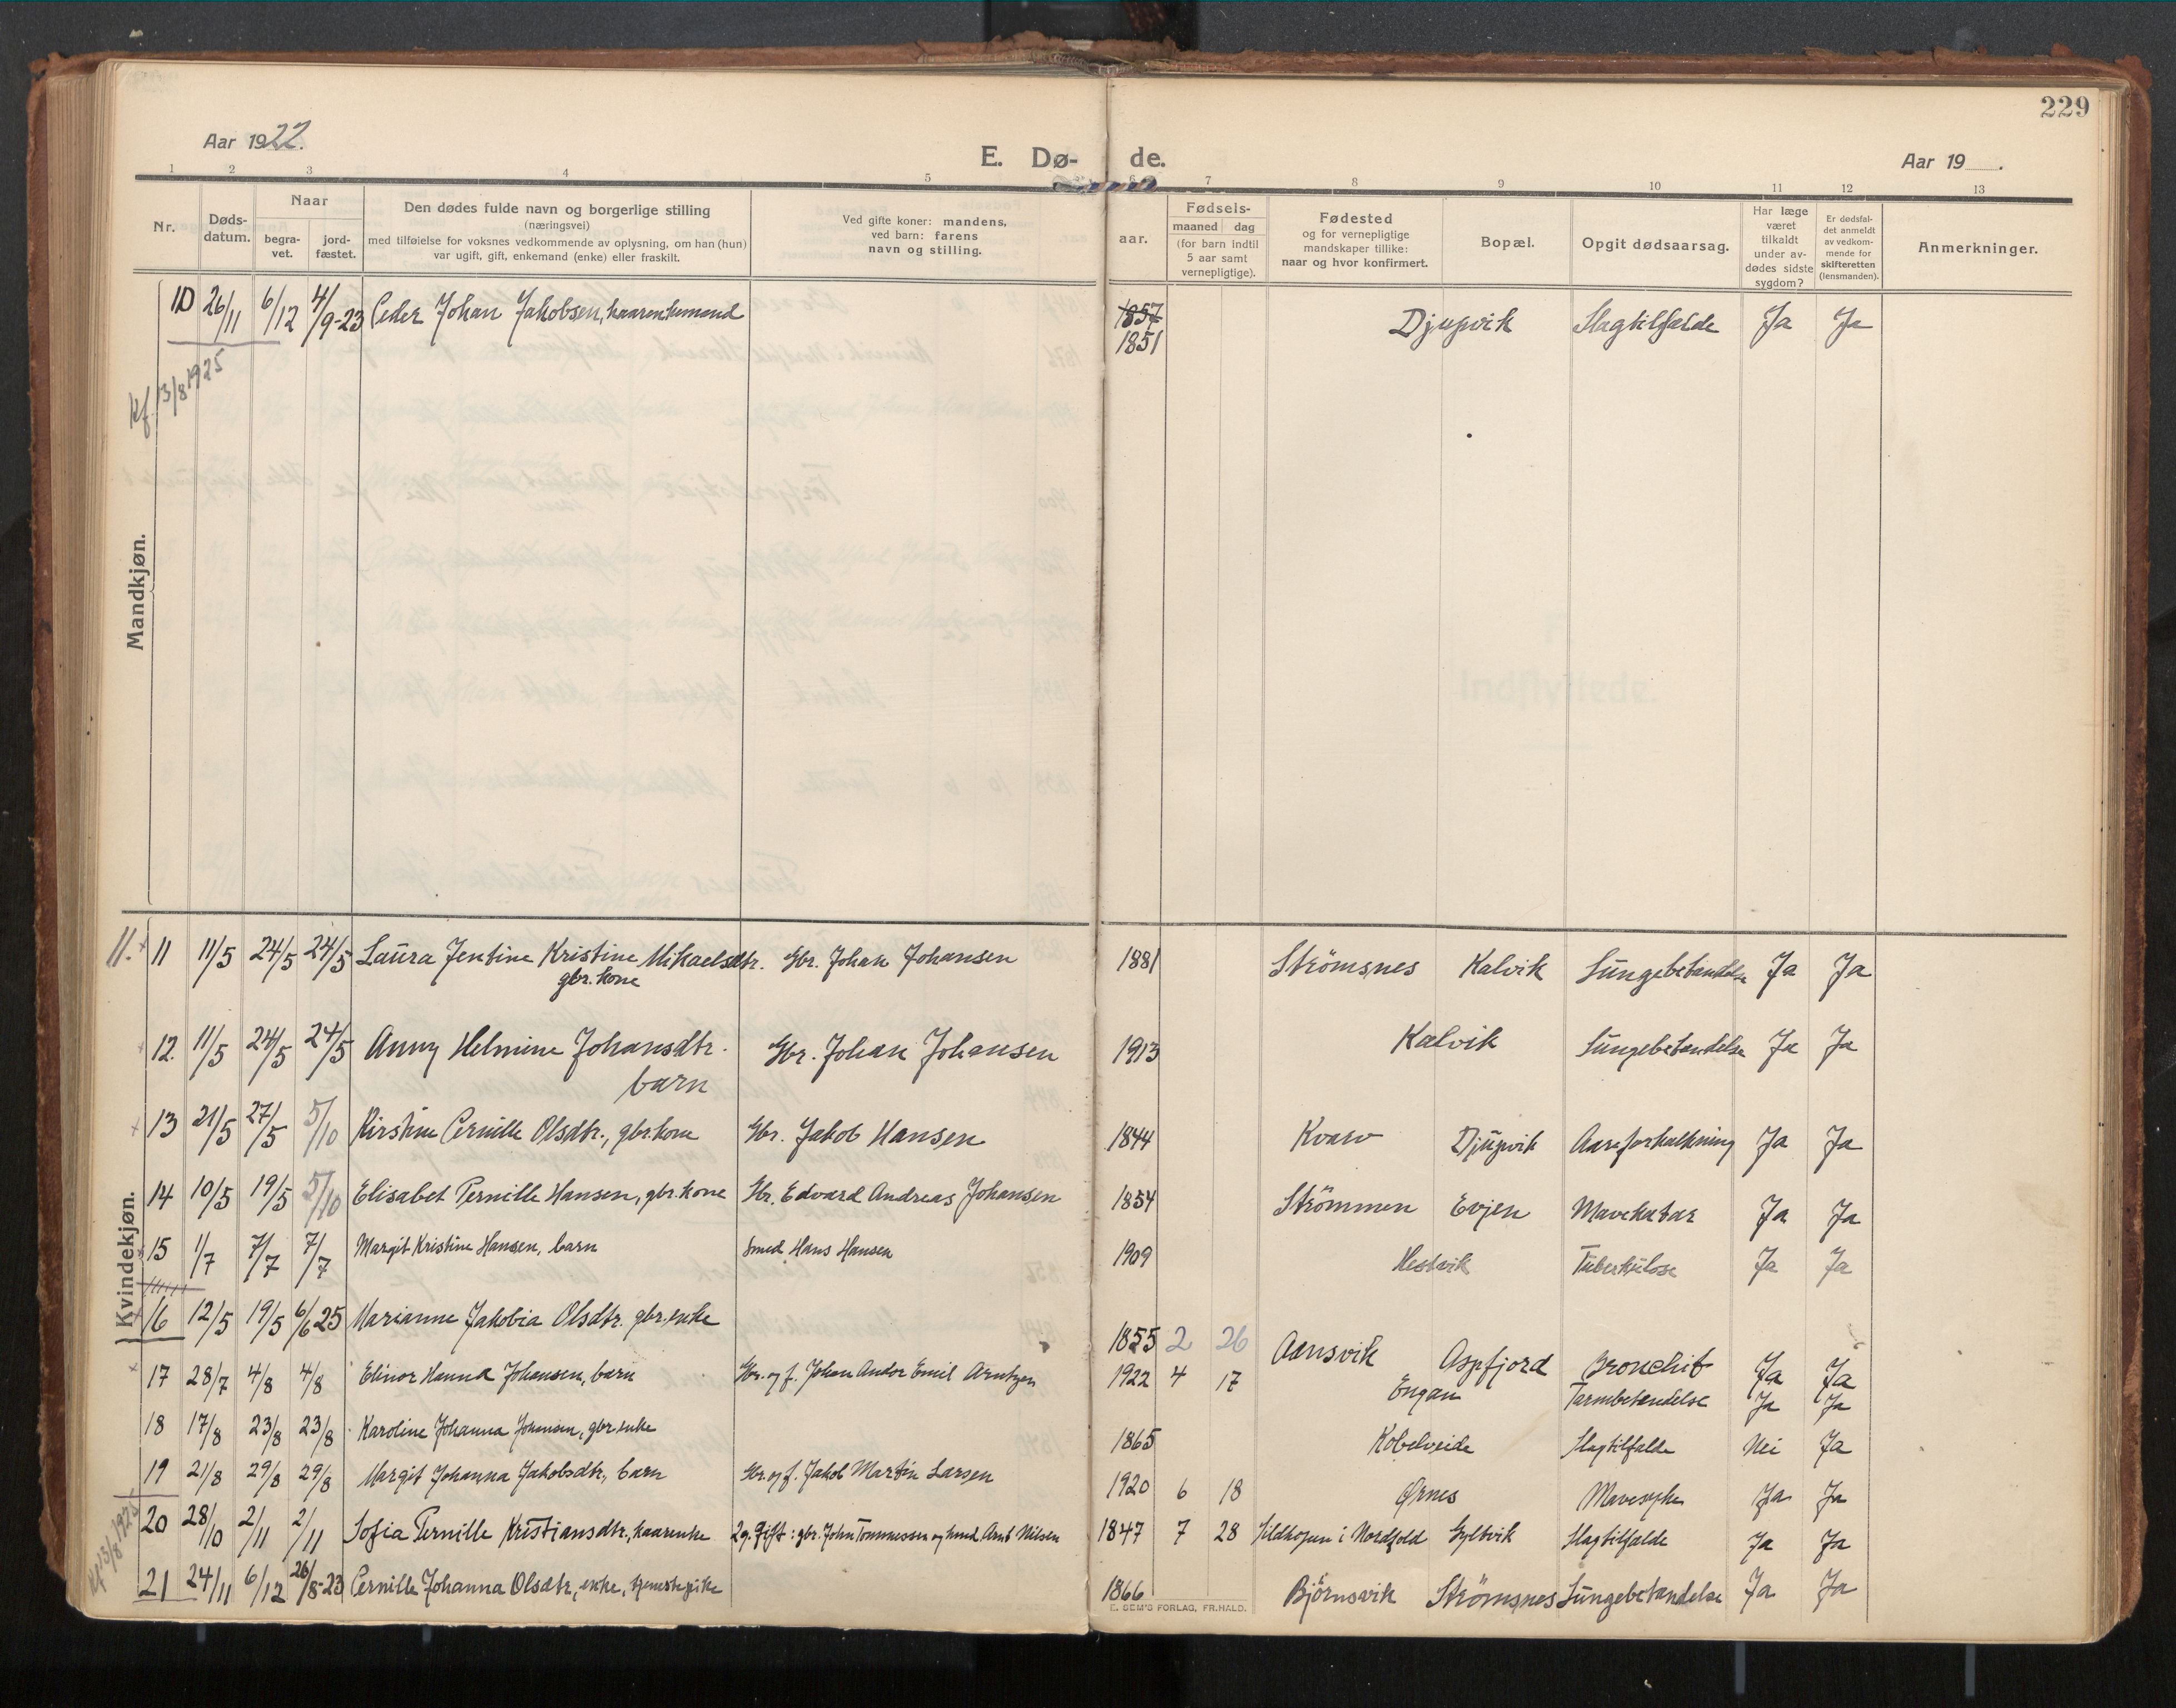 229
Aar 1922.
E. Dø-
de.
Aar 19 .
1 2 3 4 5 6 7 8 9 10 11 12 13
Nr.
Døds-
datum.
Naar
begra-
vet.
jord-
fæstet.
Den dødes fulde navn og borgerlige stilling
(næringsvei)
med tilføielse for voksnes vedkommende av oplysning, om han (hun)
var ugift, gift, enkemand (enke) eller fraskilt.
Ved gifte koner: mandens,
ved barn: farens
navn og stilling.
aar.
Fødsels-
maaned dag
(for barn indtil
5 aar samt
vernepligtige).
Fødested
og for vernepligtige
mandskaper tillike:
naar og hvor konfirmert.
Bopæl.
Opgit dødsaarsag.
Har læge
været
tilkaldt
under av-
dødes sidste
sygdom?
Er dødsfal-
det anmeldt
av vedkom-
mende for
skifteretten
(lensmanden).
Anmerkninger.
Mandkjøn.
10 26/11 6/12 4/9-23 Peder Johan Jakobsen, kaarenkemand 1857 Djupvik Slagtilfælde Ja Ja
1851
kf. 13/8 1925
Kvindekjøn.
11. + 11 11/5 24/5 24/5 Laura Jentine Kristine Mikaelsdtr. Gbr. Johan Johansen 1881 Strömsnes Kalvik Lungebetændelse Ja Ja
gbr. kone
12. 11/5 24/5 24/5 Anny Helmine Johansdtr. Gbr. Johan Johansen 1913 Kalvik Lungebetændelse Ja Ja
barn
+ 13 21/5 27/5 5/10 Kirstine Pernille Olsdtr., gbr.kone Gbr. Jakob Hansen 1844 Kvarv Djupvik Aareforkalkning Ja Ja
14 10/5 19/5 5/10 Elisabet Pernille Hansen, gbr. kone Gbr. Edvard Andreas Johansen 1854 Strömmen Evjen Mavekatar Ja Ja
15 1/7 7/7 7/7 Margit Kristine Hansen, barn Smed Hans Hansen 1909 Hestvik Tuberkulose Ja Ja
16 12/5 19/5 6/6 25 Marianne Jakobia Olsdtr. gbr. enke 1855 2 26 Aansvik Aspfjord Bronchit Ja Ja
+ 17 28/7 4/8 4/8 Elinor Hanna Johansen, barn Gbr. og f. Johan Andor Emil Arntzen 1922 4 17 Engan Tarmbetændelse Ja Ja
18 17/8 23/8 23/8 Karoline Johanna Johansen, gbr. enke 1865 Kobelveide Slagtilfælde Nei Ja
19 21/8 29/8 29/8 Margit Johanna Jakobsdtr., barn Gbr. og f. Jakob Martin Larsen 1920 6 18 Ørnes Mavesyke Ja Ja
20 28/10 2/11 2/11 Sofia Pernille Kristiansdtr., kaarenke 2 g. gift: gbr. John Tommessen og Arnt Nilsen 1847 7 28 Sildhopen i Nordfold Gyltvik Slagtilfælde Ja Ja
kf 13/8 1925
21 24/11 6/12 26/8-23 Pernille Johanna Olsdtr., enke, tjenestepike 1866 Björnsvik Strömsnes Lungebetændelse Ja Ja
E. SEM'S FORLAG, FR.HALD.